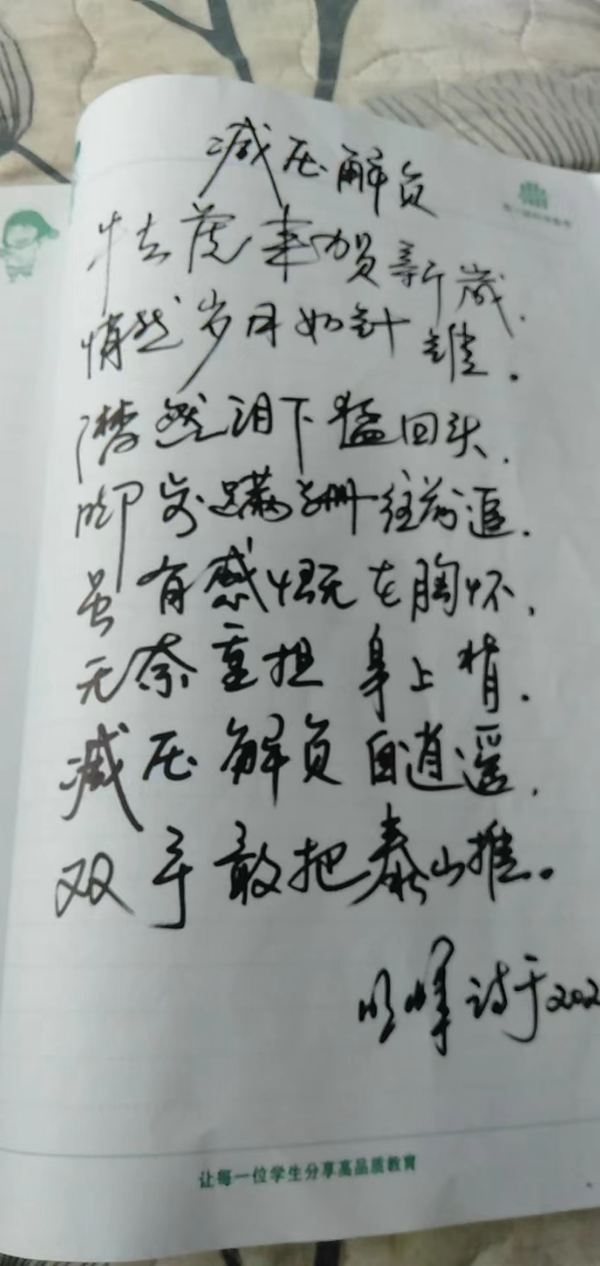 减压解负
牛去虎来贺新岁,
悄然岁月如针锥。
潸然泪下猛回头,
脚步蹒跚往前追。
虽有感慨在胸怀,
无奈重担身上背。
减压解负自逍遥,
双手敢把泰山推。
明峰诗于202
让每一位学生分享高品质教育